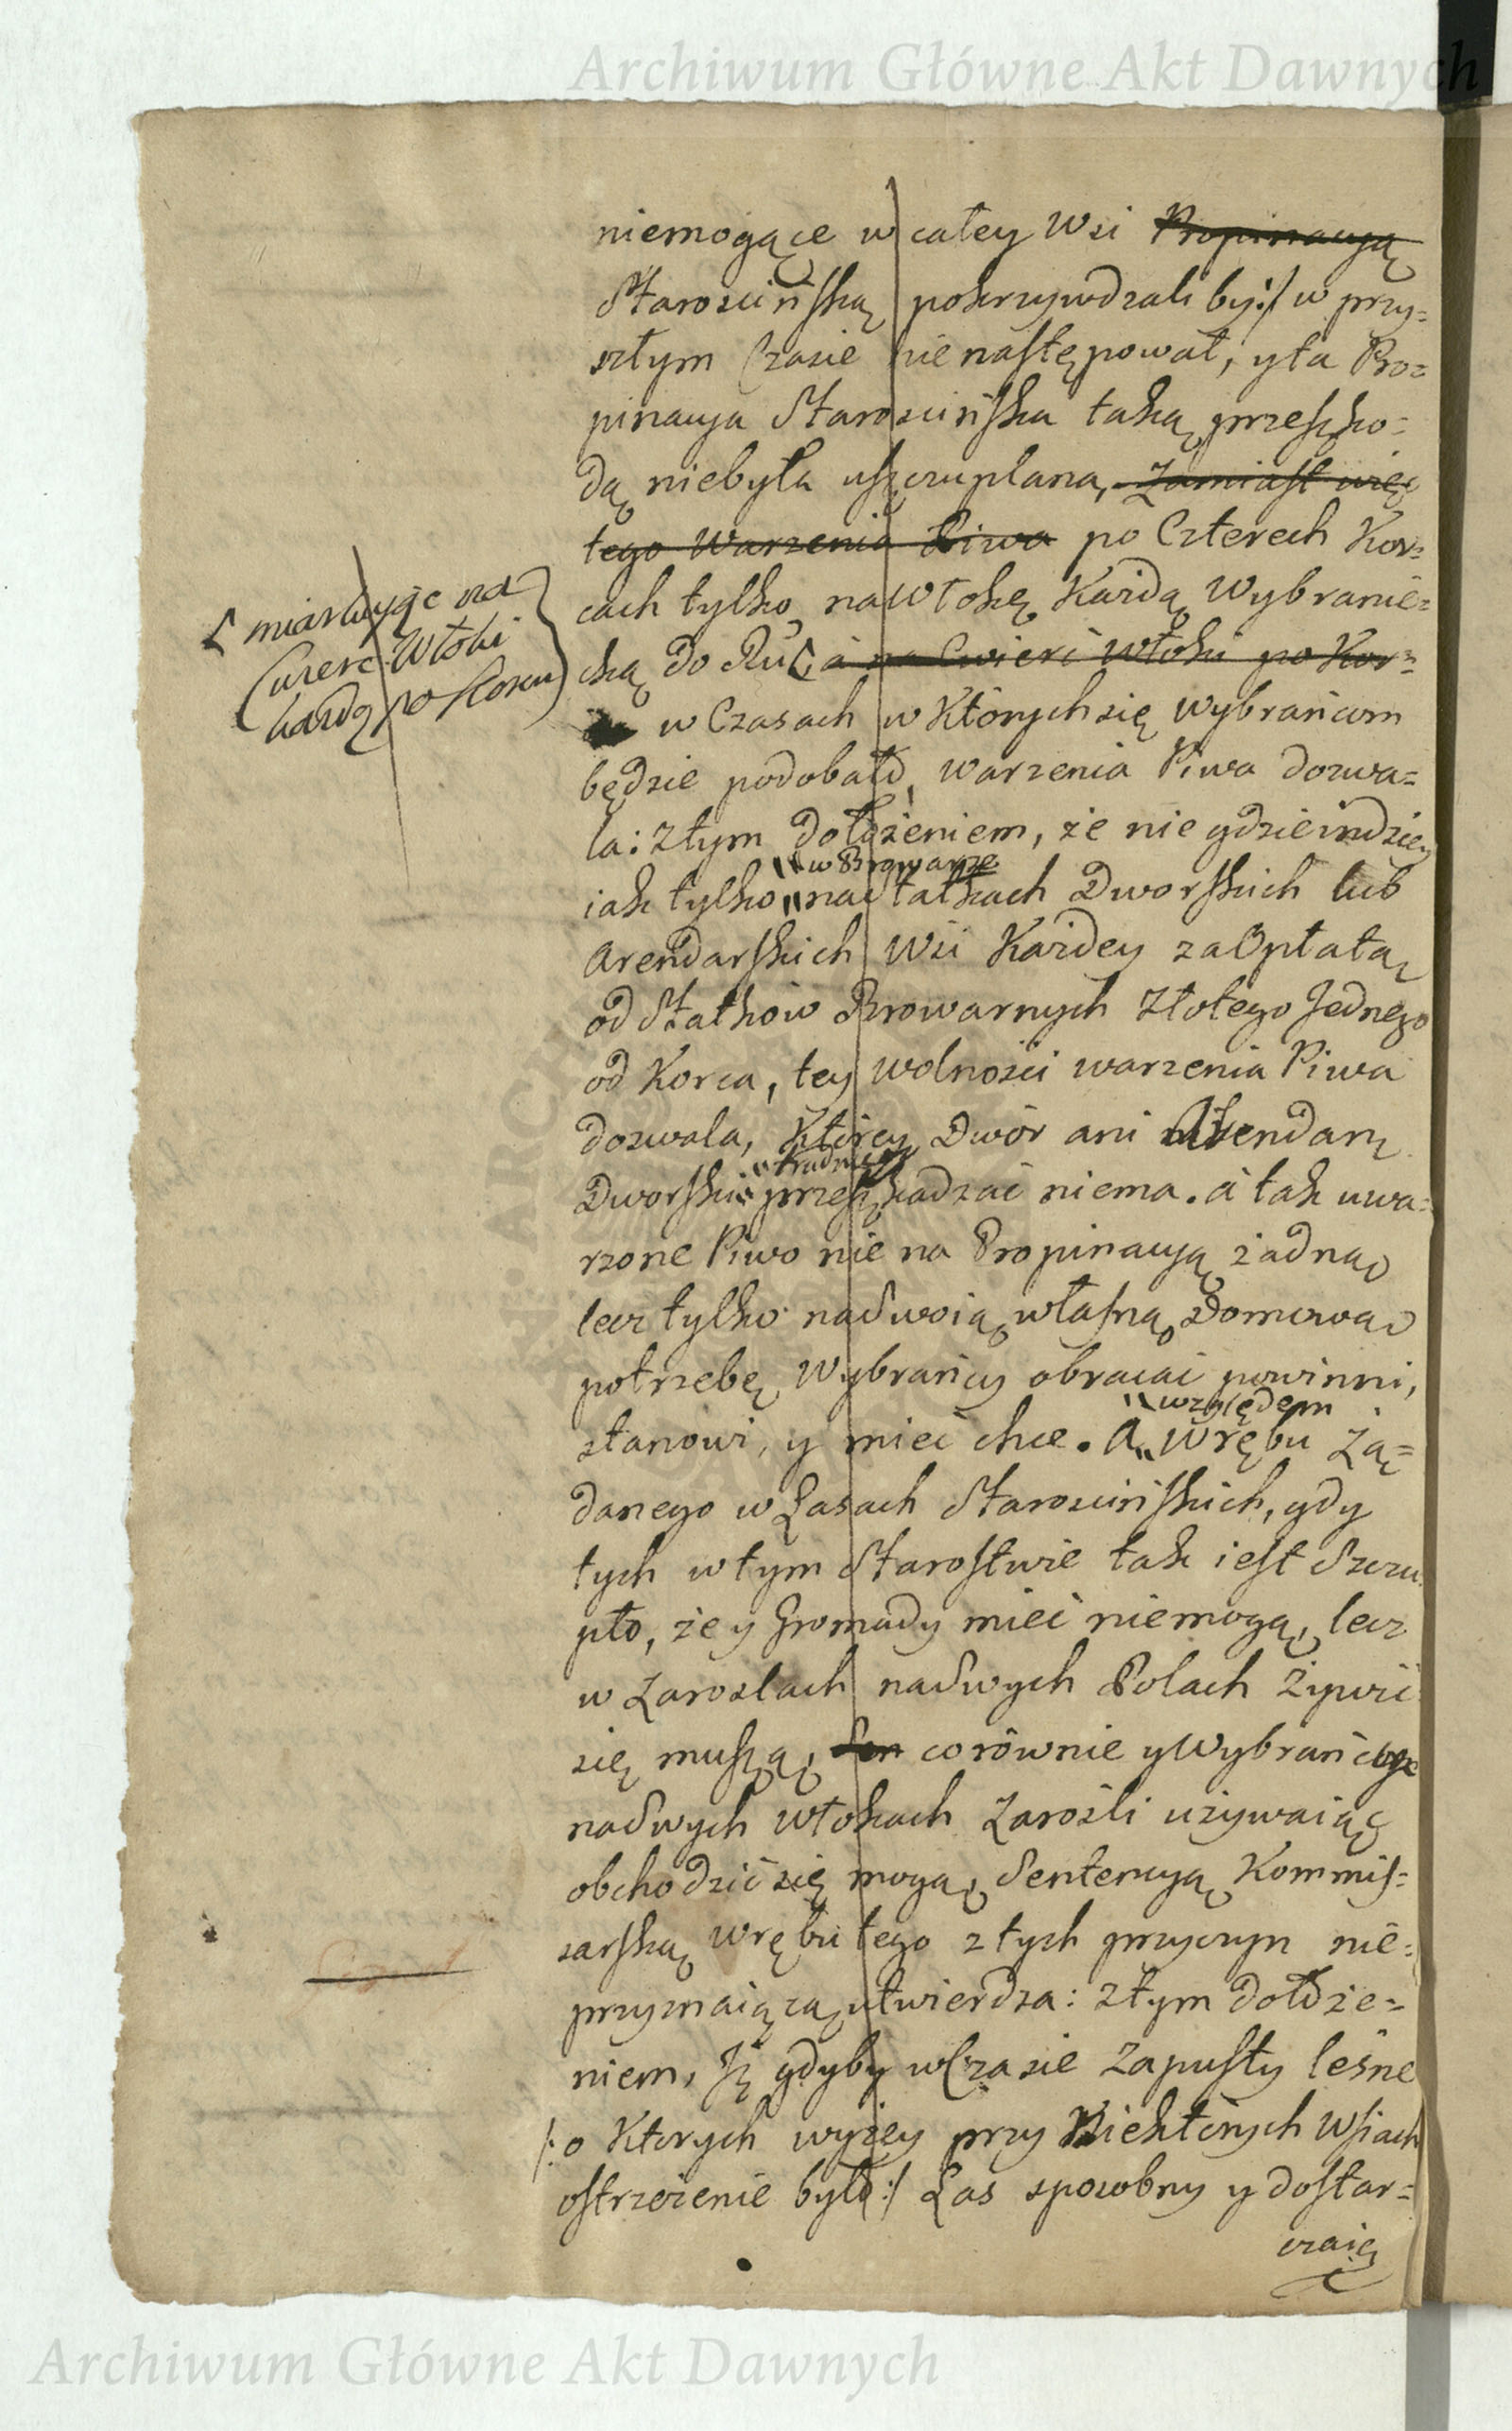 Archiwum Główne Akt Dawnych
niemogące w całey Wsi Propinacyą
Starościńską pokrzywdzali by:/ w przy=
szłym Czasie nienastępował, y ta Pro=
pinacya Starościńska taką przeszko=
dą niebyła uszczuplana, Zamiast więc
tego Warzenia Piwa po Czterech Kor=
cach tylko na Włokę Każdą Wybranie=
cką do Ru a na Cwierć Włoki po Kor=
w Czasach w Których się Wybrańcom
będzie podobało, warzenia Piwa dozwa=
la: z tym dołożeniem, że nie gdzieindziey
"w Browarze
iak tylko " na statkach Dworskich lub
Arendarskich Wsi Każdey za Opłatą
od Statków Browarnych Złotego Jednego
od Korca, tey wolności warzenia Piwa
dozwala, Którey Dwór ani Arendarz
Dworski " przeszkadzać niema. a tak uwa=
rzone Piwo nie na Propinacyą żadną
lecz tylko na Swoią własną Domową
potrzebę Wybrańcy obracać powinni,
"względem
stanowi, y mieć chce. A " Wrębu Żą=
danego w Lasach Starościńskich, gdy
tych w tym Starostwie tak iest Szczu
pło, że y Gromady mieć niemogą, lecz
w Zaroslach na Swych Polach Żywić
się muszą, co równie y Wybrańcy
na Swych Włokach Zarośli używaiąc
obchodzić się mogą, Sentencyą Kommis=
sarską Wrębu tego z tych przyczyn nie=
przyznaiącą utwierdza: z tym dołoże=
niem, Iż gdyby w Czasie Zapusty leśne
/: o Których wyżey przy Niektórych Wsiach
ostrzeżenie było :/ Las sposobny y dostar=
czaią
miarkuiąc na
Cwierć Włoki
każdą po Korcu
Archiwum Główne Akt Dawnych